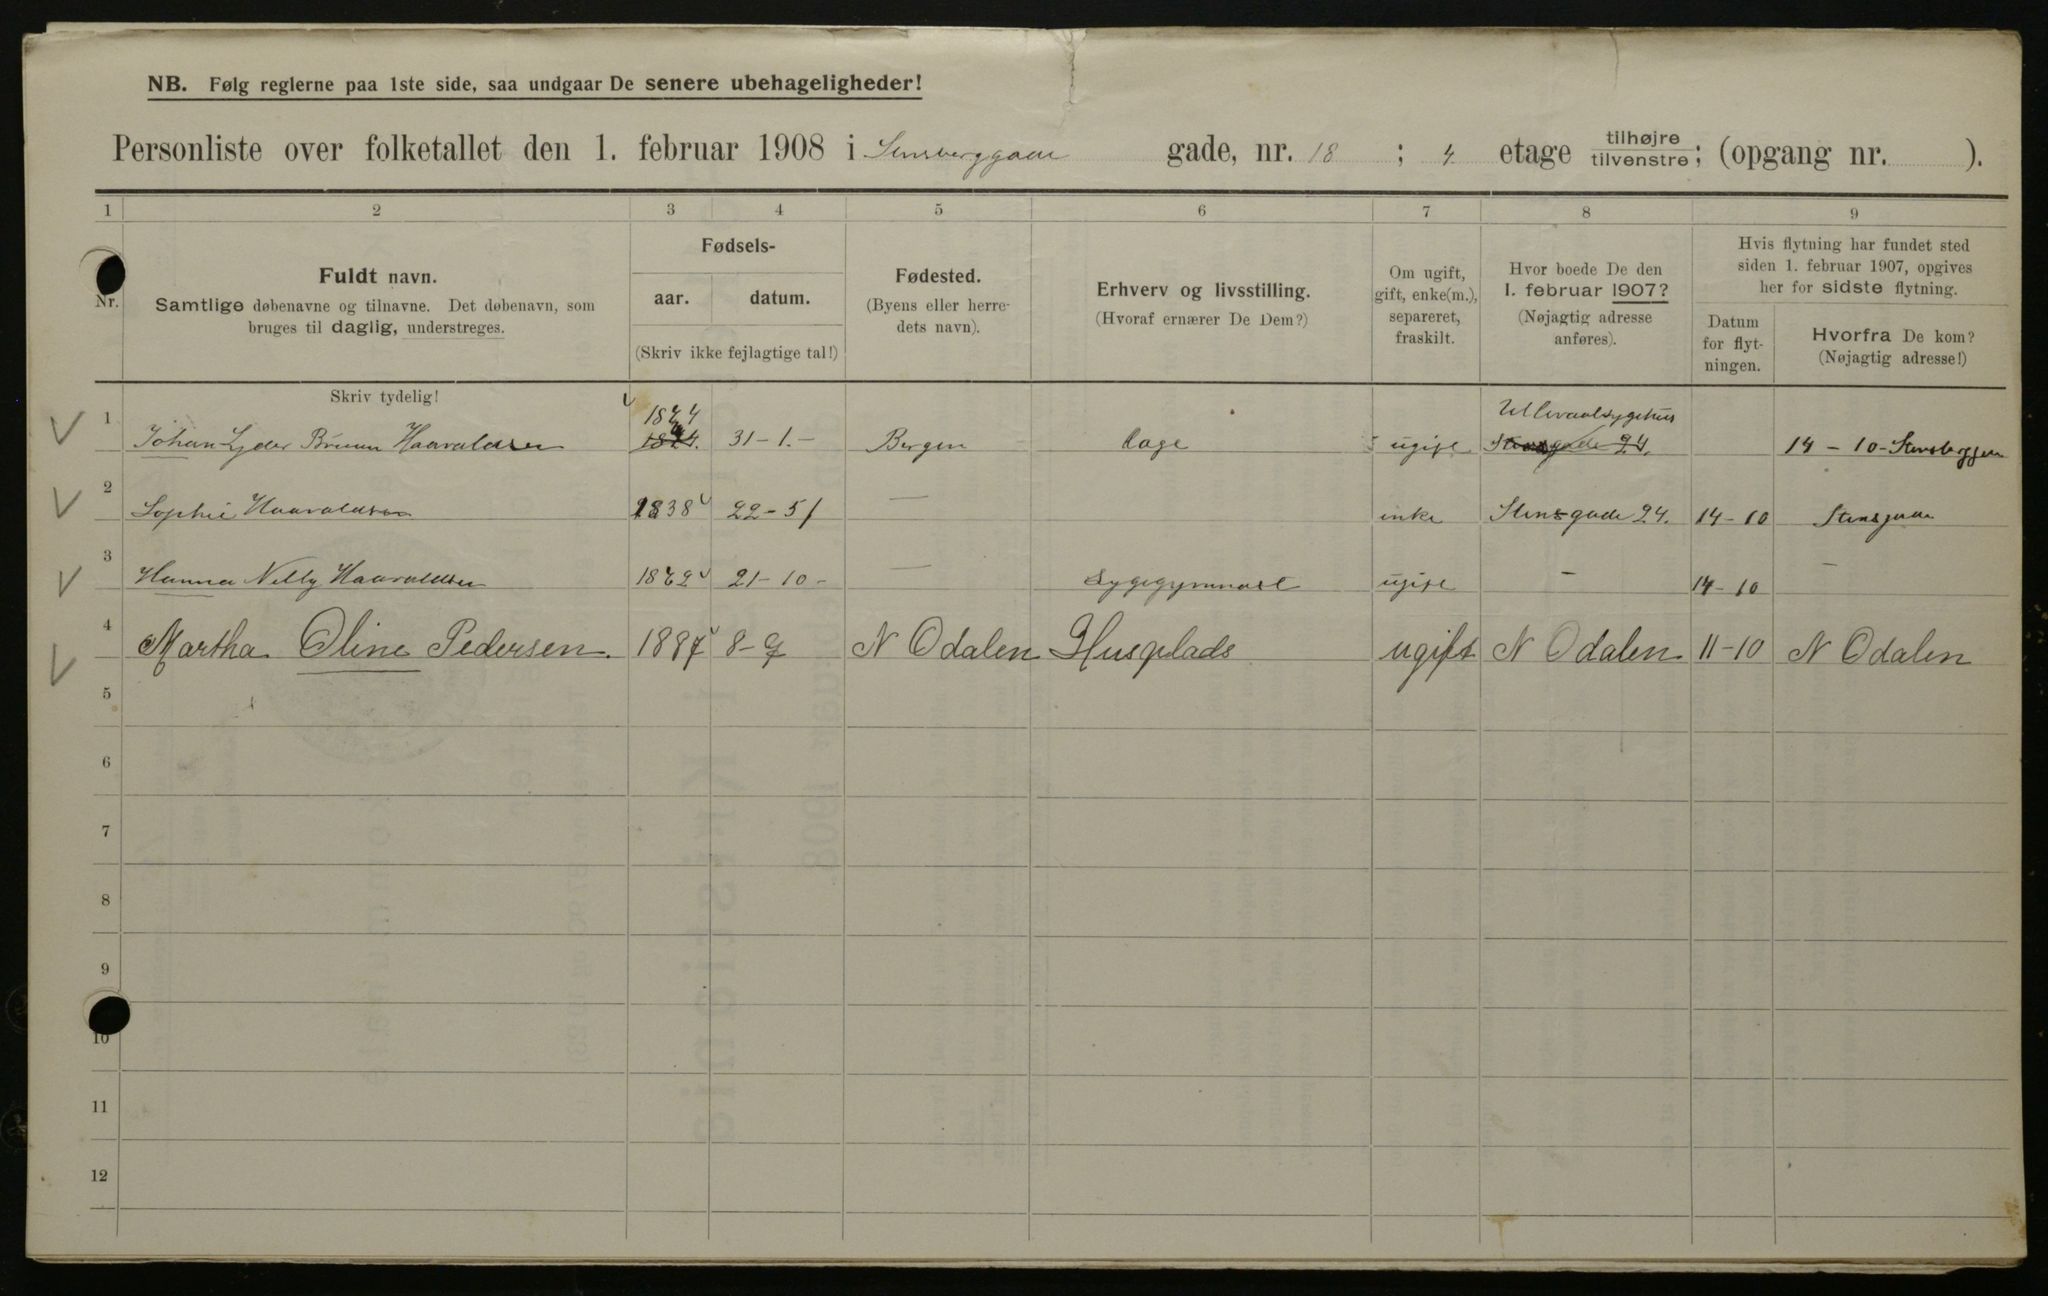 NB. Følg reglerne paa 1ste side, saa undgaar De senere ubehageligheder!
Personliste over folketallet den 1. februar 1908 i Stensberggaden gade, nr. 18 ; 4 etage tilhøjre tilvenstre; (opgang nr. ).
1 2 3 4 5 6 7 8 9
Nr. Fuldt navn. Samtlige døbenavne og tilnavne. Det døbenavn, som bruges til daglig, understreges.
Skriv tydelig!
Fødsels-
aar. datum.
(Skriv ikke fejlagtige tal!)
Fødested.
(Byens eller herre-
dets navn).
Erhverv og livsstilling.
(Hvoraf ernærer De Dem?)
Om ugift,
gift, enke(m.),
separeret,
fraskilt.
Hvor boede De den
1. februar 1907?
(Nøjagtig adresse
anføres).
Hvis flytning har fundet sted
siden 1. februar 1907, opgives
her for sidste flytning.
Datum
for flyt-
ningen.
Hvorfra De kom?
(Nøjagtig adresse!)
1 Johan Lyder Bruun Haavaldsen 1874 31-1.- Bergen Læge ugift Ullevaalsygehus Stensgade 24. 14 - 10 - Stensberggen
2 Sophie Haavaldsen 1838 22-5/ — enke Stensgade 24. 14-10 Stensgade
3 Hanna Nelly Haavaldsen 1872 21-10- — Sygegymnast ugift - 14-10 -
4 Martha Oline Pedersen. 1887 8-9 N Odalen Husplads ugift N Odalen 11-10 N Odalen
5
6
7
8
9
10
11
12